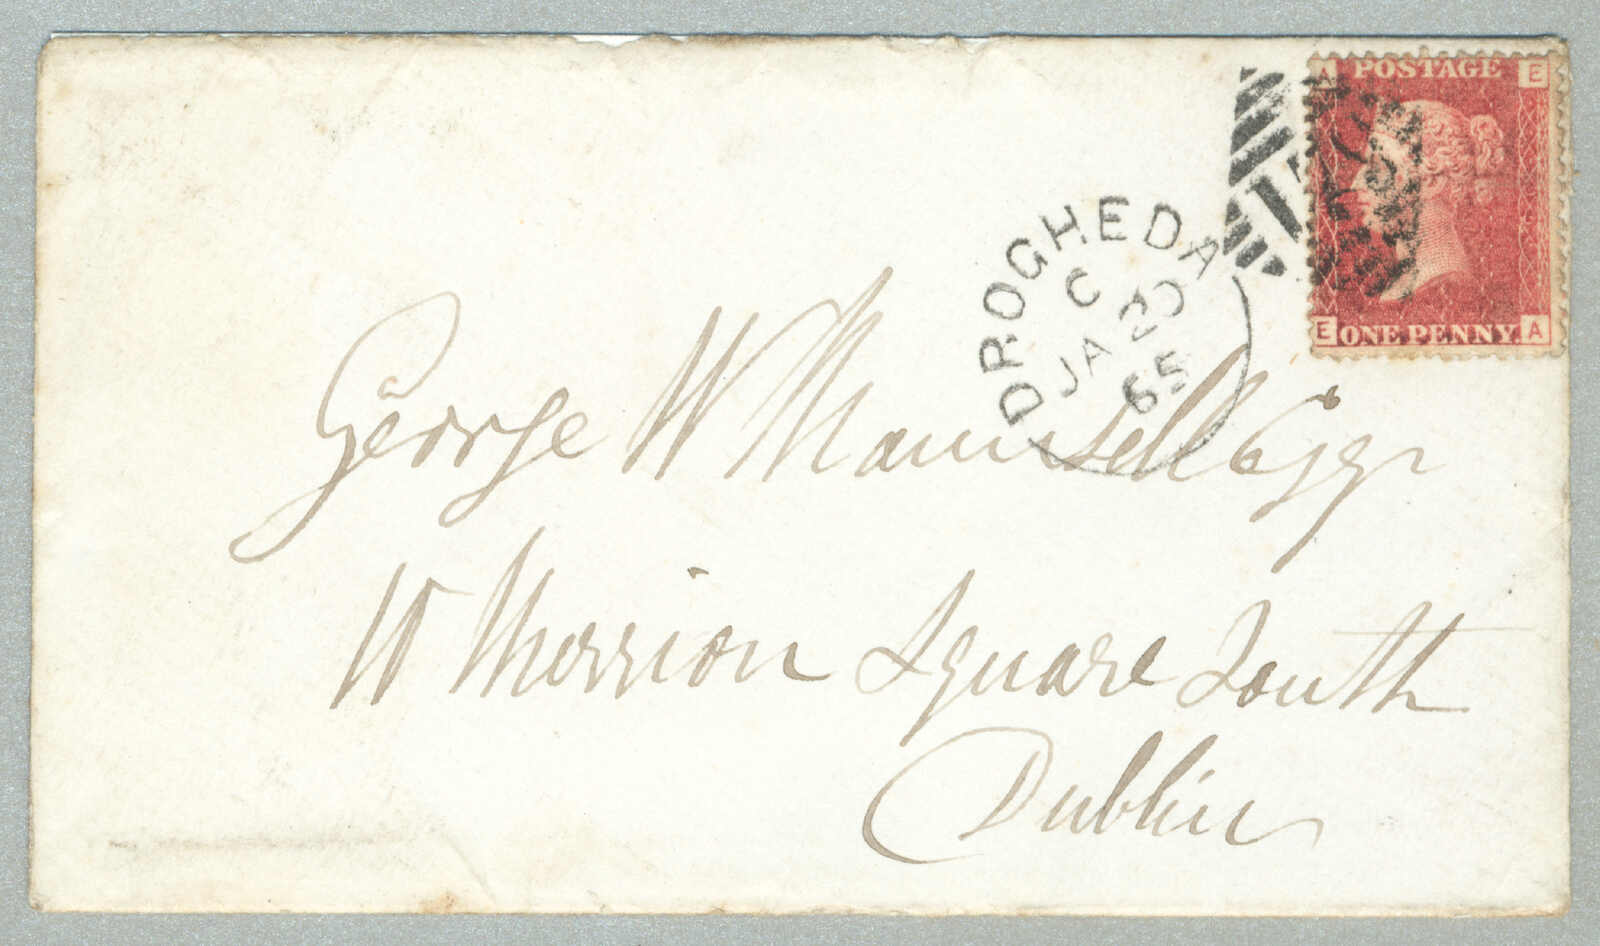 A POSTAGE E
E ONE PENNY. A
DROGHEDA
C
JA 20
65
George W Maunsell Esqr
10 Merrion Square South
Dublin